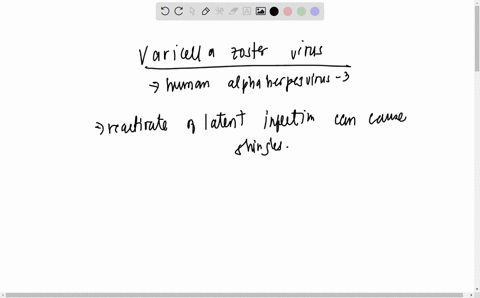 Varicella zoster virus
→ human alphaherpesvirus-3
→ reactivate of latent infection can cause
shingles.